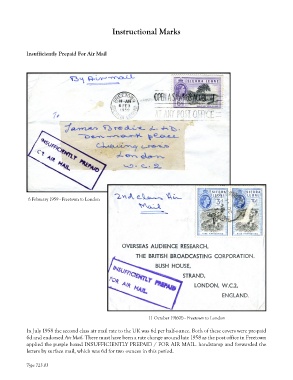 Instructional Marks
Insufficiently Prepaid For Air Mail
By Air mail
SIERRA LEONE
To
James Brodie & Co.
Denmark Place
Charing Cross
London
W.C.2
INSUFFICIENTLY PREPAID
AIR MAIL
6 February 1959 - Freetown to London
2nd Class Air
Mail
OVERSEAS AUDIENCE RESEARCH,
THE BRITISH BROADCASTING CORPORATION,
BUSH HOUSE,
STRAND,
LONDON, W.C.2,
ENGLAND.
INSUFFICIENTLY PREPAID
FOR AIR MAIL.
- Freetown to London
In July 1958 the second class air mail rate to the UK was 6d per half-ounce. Both of these covers were prepaid
6d and endorsed Air Mail. There must have been a rate change around late 1958 as the post office in Freetown
applied the purple boxed INSUFFICIENTLY PREPAID / FOR AIR MAIL handstamp and forwarded the
letters by surface mail, which was 6d for two ounces in this period.